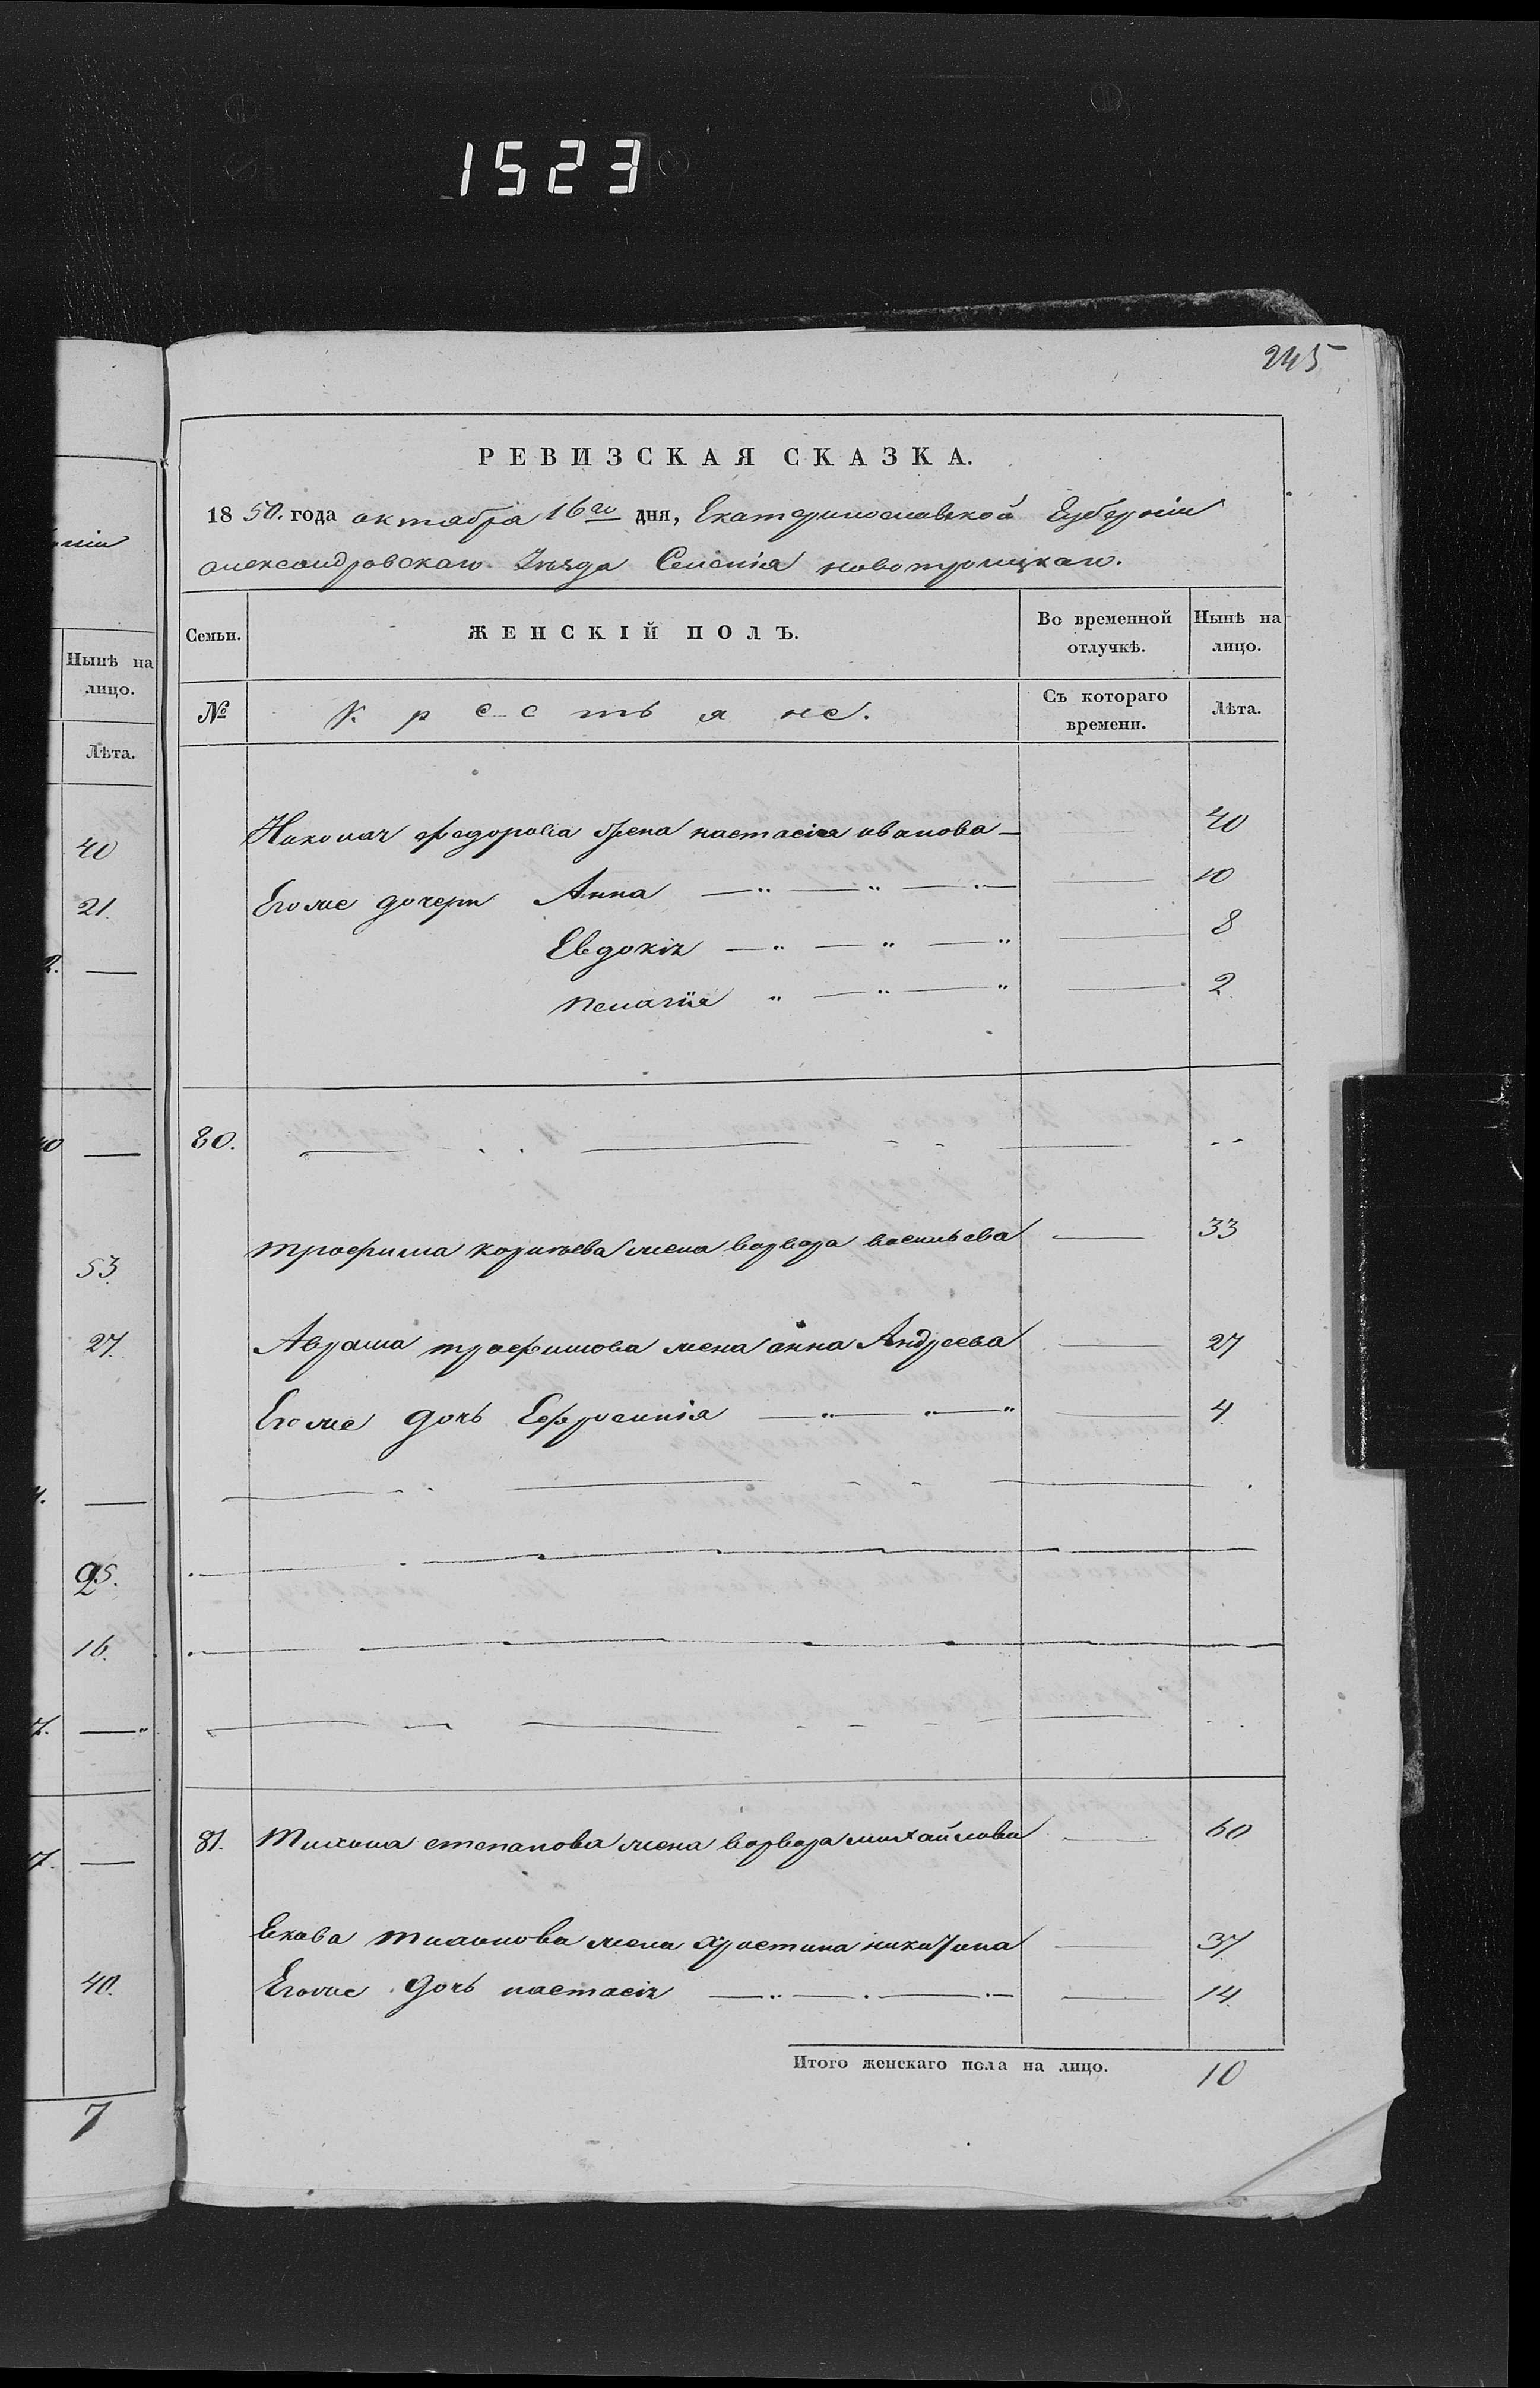 1523
245
РЕВИЗСКАЯ СКАЗКА.
1850. года октября 16го дня, Екатеринославской Губерніи
александровскаго Уѣзда Селенія новотроицкаго.
Семьи. ЖЕНСКІЙ ПОЛЪ. Во временной отлучкѣ. Нынѣ на лицо.
№ Крестьяне. Съ котораго времени. Лѣта.
Николая федорова жена настасія иванова — 40
Егоже дочери Анна 10
Евдокія 8
пелагія 2.
80.
трофима жена варвара васильева 33
Аврама трофимова жена анна Андреева 27
Егоже дочь Ефросинія 4
81. Тихона степанова жена варвара михайлова 60
Екова тихонова жена христина 37.
Егоже дочь настасія 14.
Итого женскаго пола на лицо. 10
ніи
Нынѣ на
лицо.
Лѣта.
40
21.
53
27.
25.
16.
40.
7